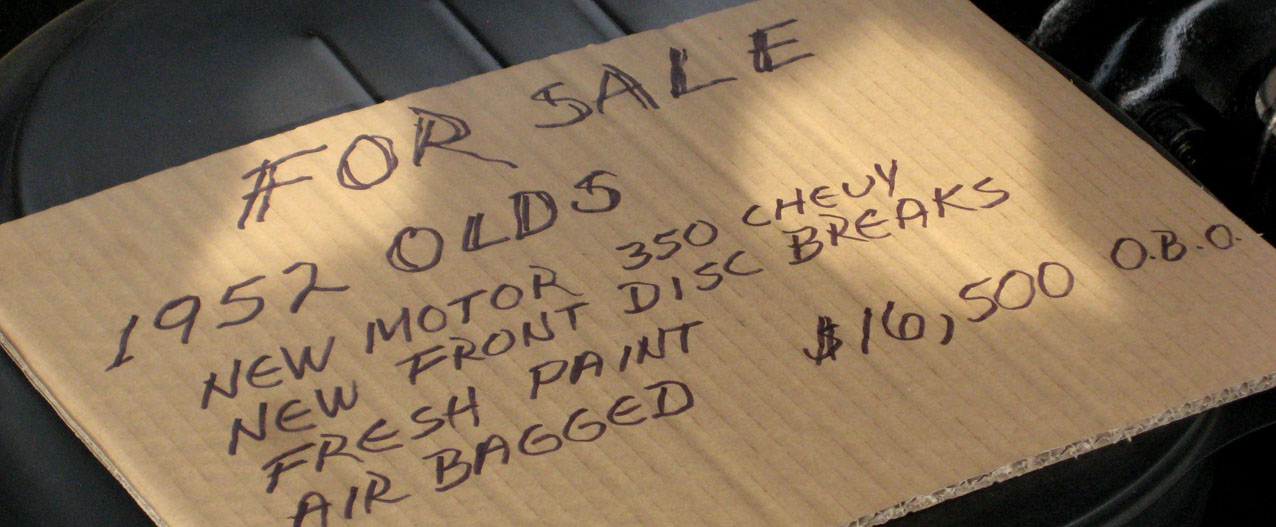 FOR SALE
1952 OLDS
NEW MOTOR 350 CHEVY
NEW FRONT DISC BREAKS
FRESH PAINT
AIR BAGGED
$16,500 O.B.O.